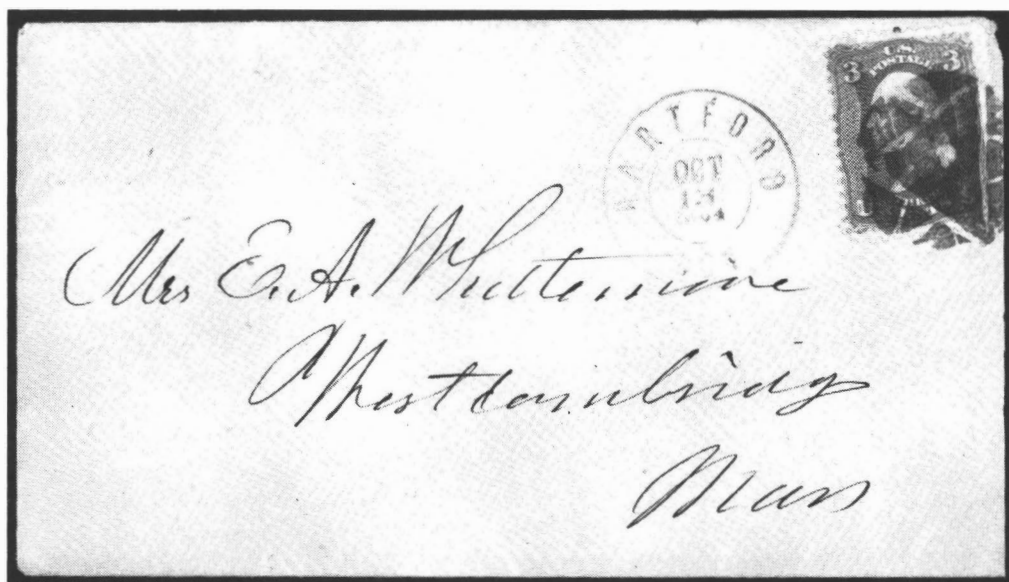 U.S.
POSTAGE
3 3
HARTFORD
OCT
Mrs E. A. Whittemore
West Cambridge
Mass